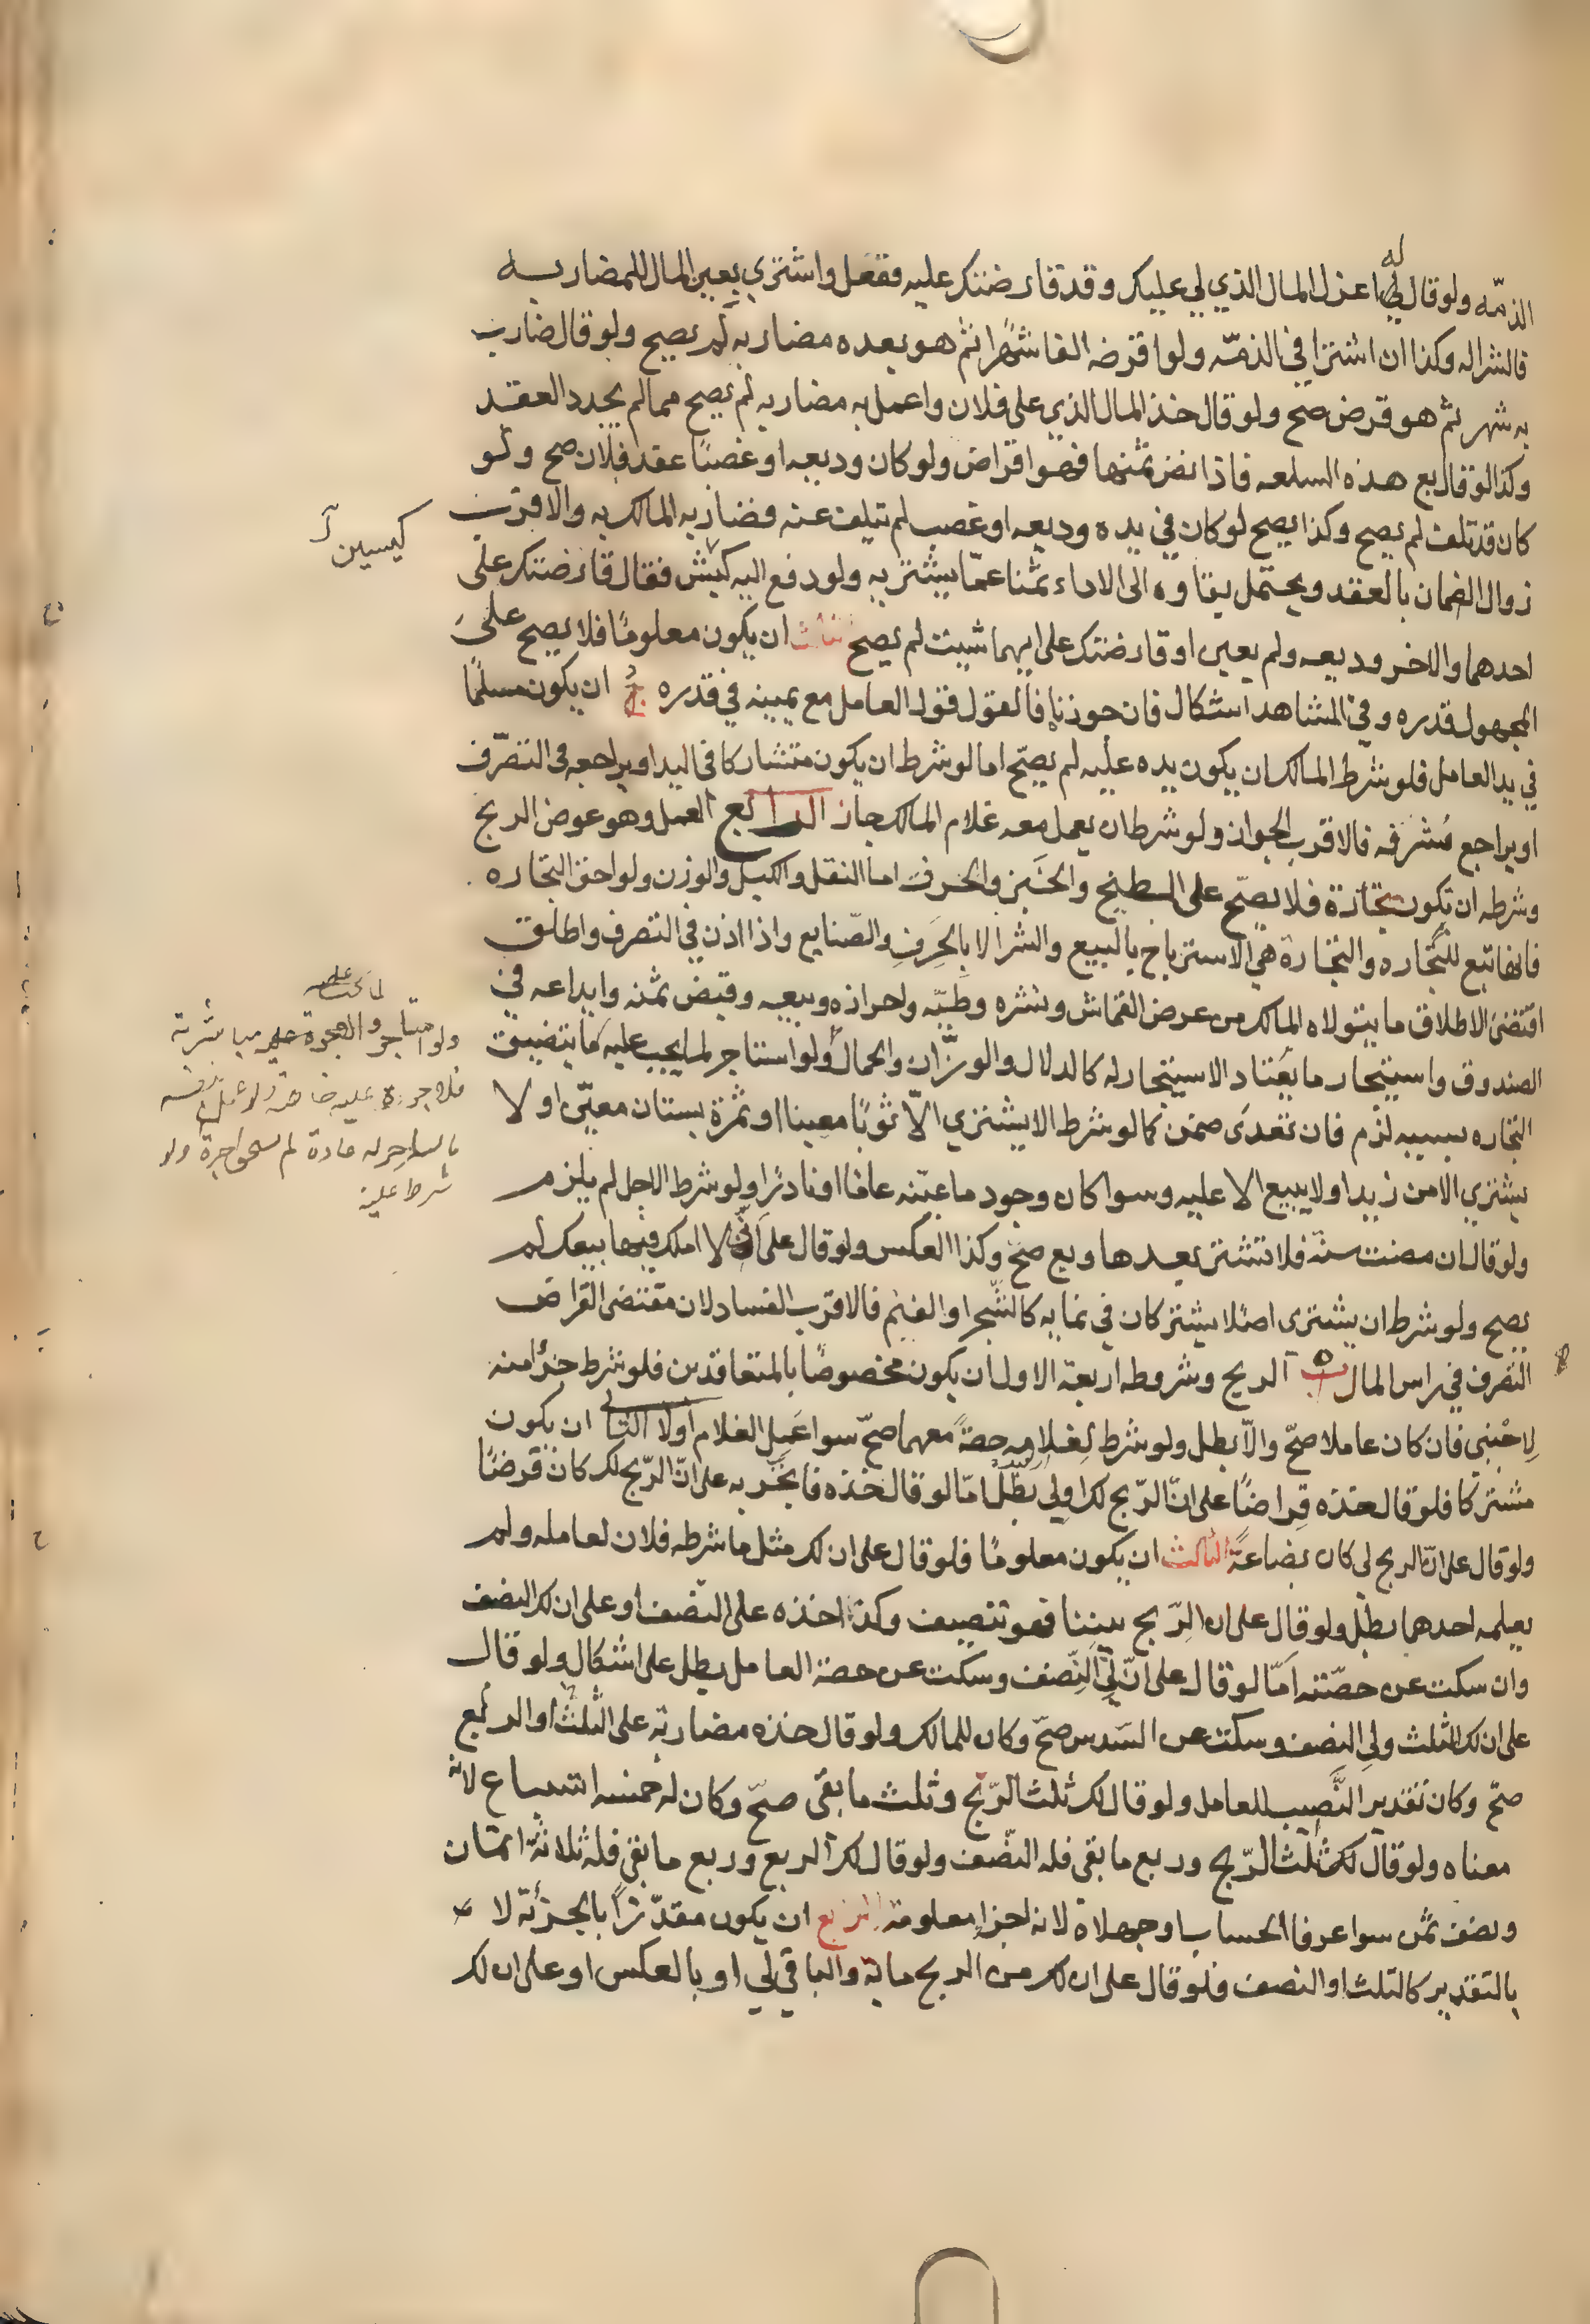 الذمّه ولو قال له اعزل المال الذي لي عليك وقد قارضتك عليه ففعل واشترى بعين المال للمضاربه
فالشرا له وكذا ان اشترا في الذمّه ولو اقرضه الفا شهرًا ثم هو بعده مضاربه لم يصح ولو قال ضارب
به شهر ثم هو قرض صح ولو قال خذ المال الذي على فلان واعمل به مضاربه لم يصح ما لم يجدد العقد
وكذا لو قال بع هذه السلعه فاذا نض ثمنها فهو اقراض ولو كان وديعه او غصبًا عقد فلان صح ولو
كان قد تلف لم يصح وكذا يصح لو كان في يده وديعه او غصب لم تتلف عنه وضاربه المالك به والاقرب
زوال الضمان بالعقد ويحتمل بقاوه الى الاداء ثمنا عمّا يشتريه ولو دفع اليه كيش فقال قارضتك على
كيسين
احدهما والاخر وديعه ولم يعين او قارضتك على ايهما شيت لم يصح ثالث ان يكون معلومًا فلا يصح على
المجهول قدره وفي المشاهد اشكال فان جوزناه فالقول قول العامل مع يمينه في قدره ان يكون مسلمًا
في يد العامل فلو شرط المالك ان يكون يده عليه لم يصحّ اما لو شرط ان يكون متشاركا في اليد او يراجعه في التصرّف
او يراجع مُشرفه فالاقرب الجواز ولو شرط ان يعمل معه غلام المالك جاز الرابع العمل وهو عوض الربح
وشرطه ان يكون تجارة فلا يصحّ على الطبخ والخبز والحرف اما النقل والكيل والوزن ولواحق التجاره
فانها تتبع للتجاره والتجارة هي الاسترباح بالبيع والشرا لا بالحِرَفِ والصّنايع واذا اذن في التصرف واطلق
اقتضى الاطلاق ما يتولاه المالك من عرض القماش ونشره وطيّه واحرازه وبيعه وقبض ثمنه وايداعه في
الصندوق واستيجار ما يعتاد الاستيجار له كالدلال والوزّان والحمال ولو استاجر لما يجب عليه
التجاره بسببه لزم فان تعدى ضمن كما لو شرط الا يشتري الّا ثوبًا معينا او ثمرة بستان معيّن او لا
يشتري الا من زيد او لا يبيع الا عليه وسوا كان وجود ما عيّنه عاما او نادرًا ولو شرط الاجل لم يلزم
ولو قال ان مضت سنة فلا تشتر بعدها وبع صحّ وكذا العكس ولو قال على انّي لا املك فيها بيعك لم
يصح ولو شرط ان يشترى اصلا يشتركان في نمايه كالشّجر او الغنم فالاقرب الفساد لان مقتضى القراض
التصرف في راس المال الربح وشروطه اربعة الاول ان يكون مخصوصًا بالمتعاقدين فلو شرط جزأ منه
لاجنبي فان كان عاملا صحّ والّا بطل ولو شرط لغلامه حصةً معهما صحّ سوا عَمِل الغلام او لا الثاني ان يكون
مشتركا فلو قال خذه قِراضًا على انّ الرّبح لك او لي بطل امّا لو قال خذه فاتّجر به على انّ الرّبح لك كان قرضًا
ولو قال على انّ الربح لي كان بضاعةً الثالث ان يكون معلومًا فلو قال على ان لك مثل ما شرطه فلان لعامله ولم
يعلمه احدهما بطل ولو قال على ان الرّبح بيننا فهو تنصيف وكذا خذه على النّصف او على ان لك النصف
وان سكت عن حصّته امّا لو قال على انّ لي النّصف وسكت عن حصة العامل بطل على اشكال ولو قال
على ان لك الثلث ولي النصف وسكت عن السّدس صحّ وكان للمالك ولو قال خذه مضاربة على الثلث او الربع
صحّ وكان تقدير النّصيب للعامل ولو قال لك ثلث الرّبح وثلث ما بقى صحّ وكان له خمسة اتساع لانه
معناه ولو قال لك ثلث الرّبح وربع ما بقى فله النّصف ولو قال لك الربع وربع ما بقى فله ثلاثة اثمان
ونصف ثمن سوا عرفا الحساب او جهلاه لانه اجزا معلومة الرابع ان يكون مقدّرًا بالجزئة لا
بالتقدير كالثلث او النصف فلو قال على ان لك من الربح ماية والباقي لي او بالعكس او على ان لك